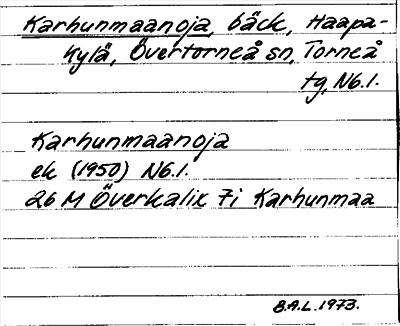 Karhunmaanoja, bäck, Haapa-
Kylä, Övertorneå sn, Torneå
tg, Nb.l.
Karhunmaanoja
ek (1950) Nb.l.
26 M Överkalix 7i Karhunmaa
B.A.L. 1973.